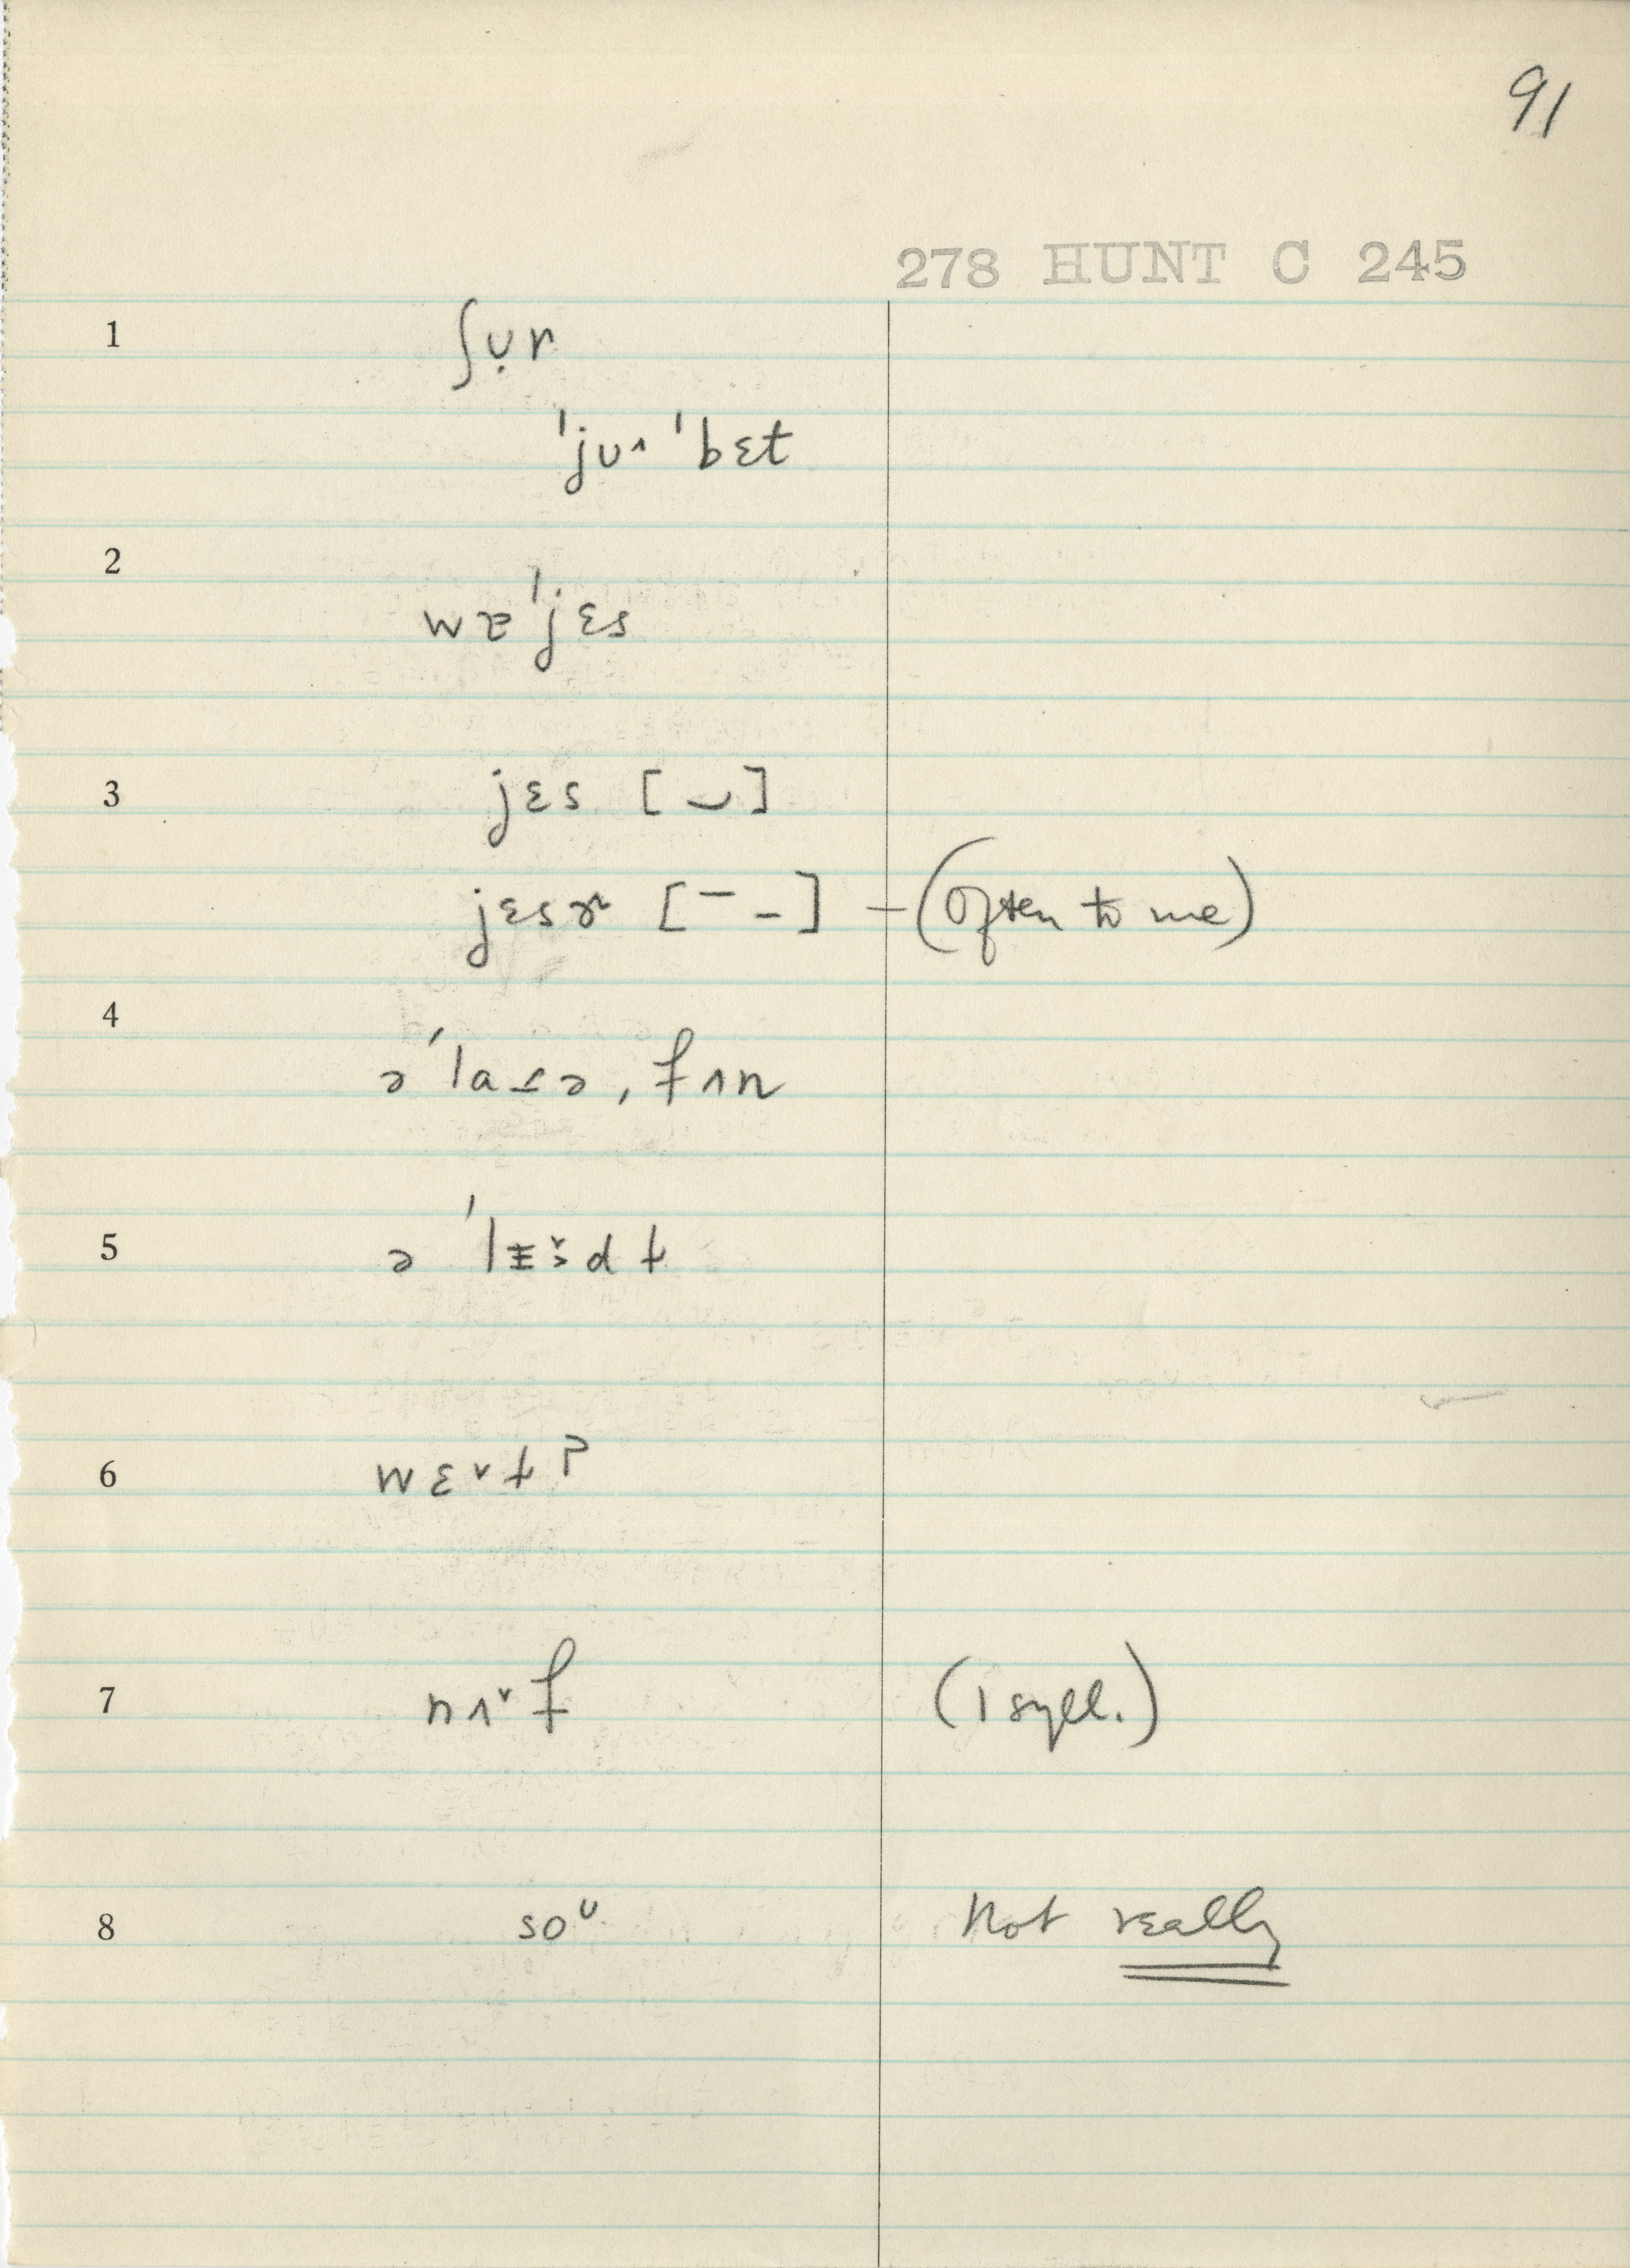 91
278 HUNT C 245
1 ʃụr
ˈjuʌ ˈbɛt
2 ˈjɛs
3 jɛs [ ‿ ]
jɛsɚ [ ¯ - ] – (Often to me)
4 ə ˈla ə, fʌn
5 ə
6
7 nʌ˅f (1 syll.)
8 soᵁ Not really